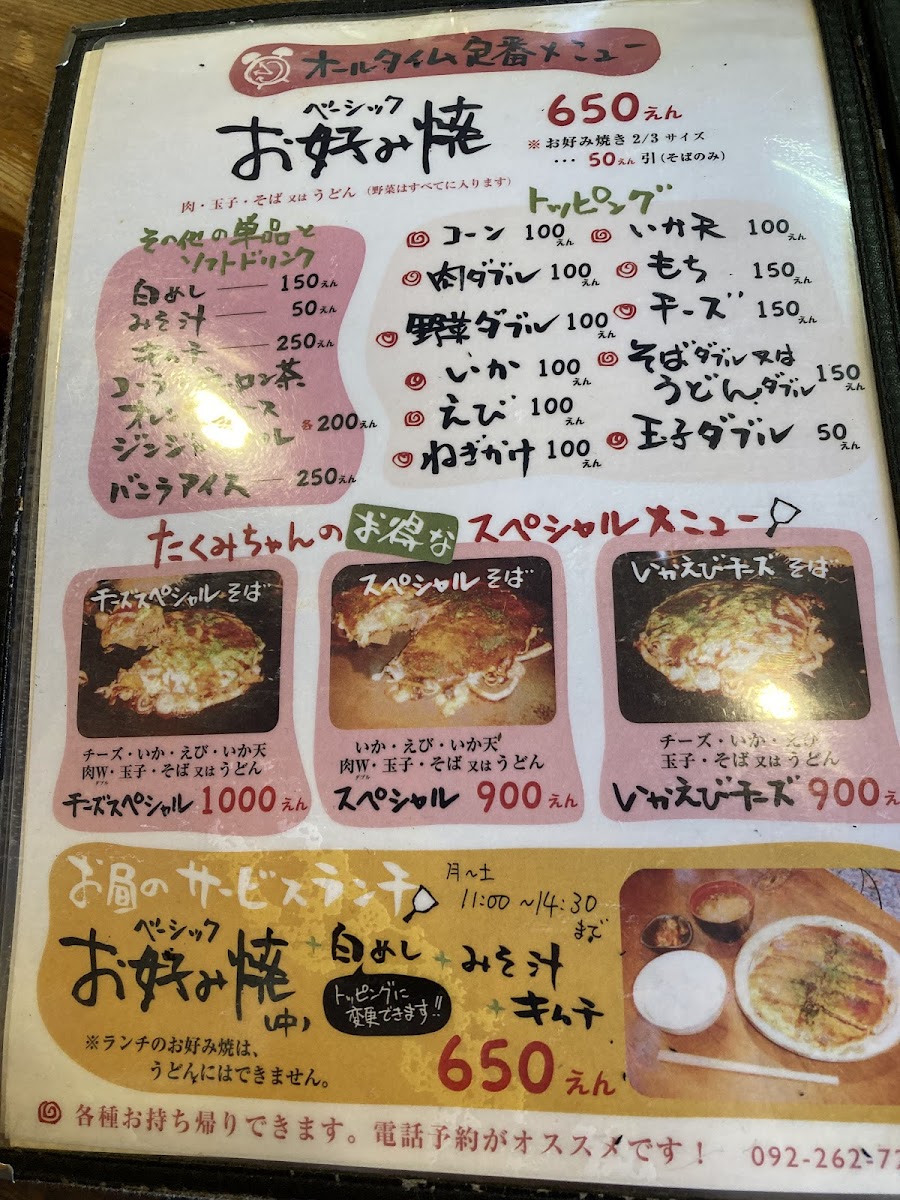 オールタイム定番メニュー
ベーシック
お好み焼 650えん
※お好み焼き2/3サイズ
… 50えん引(そばのみ)
肉・玉子・そば又はうどん(野菜はすべてに入ります)
その他の単品と
ソフトドリンク
白めし 150えん
みそ汁 50えん
キムチ 250えん
コーラ ロン茶
オレン ース
ジンジ ル 各200えん
バニラアイス 250えん
トッピング
コーン 100えん
肉ダブル 100えん
野菜ダブル 100えん
いか 100えん
えび 100えん
ねぎかけ 100えん
いか天 100えん
もち 150えん
チーズ 150えん
そばダブル又は
うどんダブル 150えん
玉子ダブル 50えん
たくみちゃんのお得なスペシャルメニュー
チーズスペシャルそば
チーズ・いか・えび・いか天
肉W・玉子・そば又はうどん
ダブル
チーズスペシャル 1000えん
スペシャルそば
いか・えび・いか天
肉W・玉子・そば又はうどん
ダブル
スペシャル 900えん
いかえびチーズそば
チーズ・いか・えび
玉子・そば又はうどん
いかえびチーズ 900え
お昼のサービスランチ
月〜土
11:00〜14:30
まで
ベーシック
お好み焼(中)+白めし+みそ汁
+キムチ
トッピングに
変更できます!!
※ランチのお好み焼は、
うどんにはできません。
650えん
各種お持ち帰りできます。電話予約がオススメです! 092-262-7